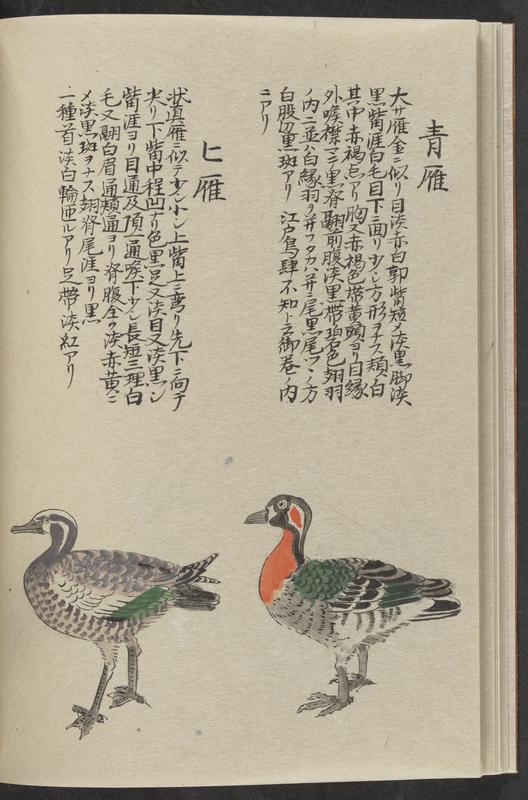 青雁
大サ雁金ニ似リ目淡赤白郭觜短メ淡黒脚淡
黒觜涯白毛目下三面リ少シ方形ヲナス頬白
其中赤褐色アリ胸又赤褐色帯黄頸ヨリ目縁
外喉襟マテ黒脊翮前腹淡黒帯碧色翅羽
ノ内二並ハ白縁羽ヲ并フタカハ并ニ尾黒尾マノ方
白股辺黒斑アリ 江戸鳥肆不知ト云御巻ノ内
ニアリ
ヒ雁
状真雁ニ似テ少シ小シ上觜上ニ弯リ先下ニ向テ
尖リ下觜中程凹ナリ色黒足又淡目又淡黒シ
觜涯ヨリ目通及頂一通喉下少シ長短三理白
毛又翮白眉通頬通ヨリ脊腹全ク淡赤黄ニ
メ淡黒斑ヲナス翅脊尾涯ヨリ黒
一種首淡白輪匝ルアリ足帯淡紅アリ